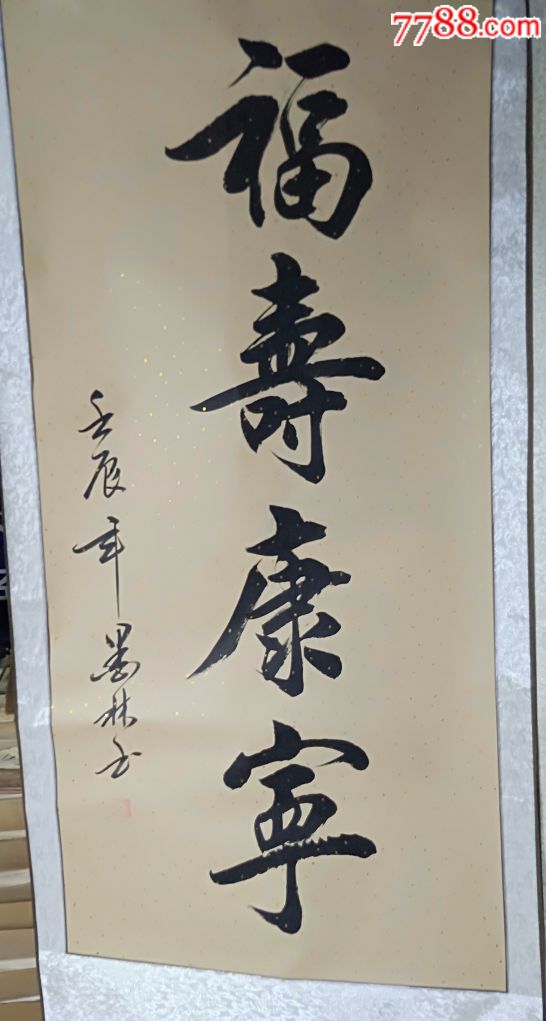 7788.com
福壽康寧
壬辰年墨林书